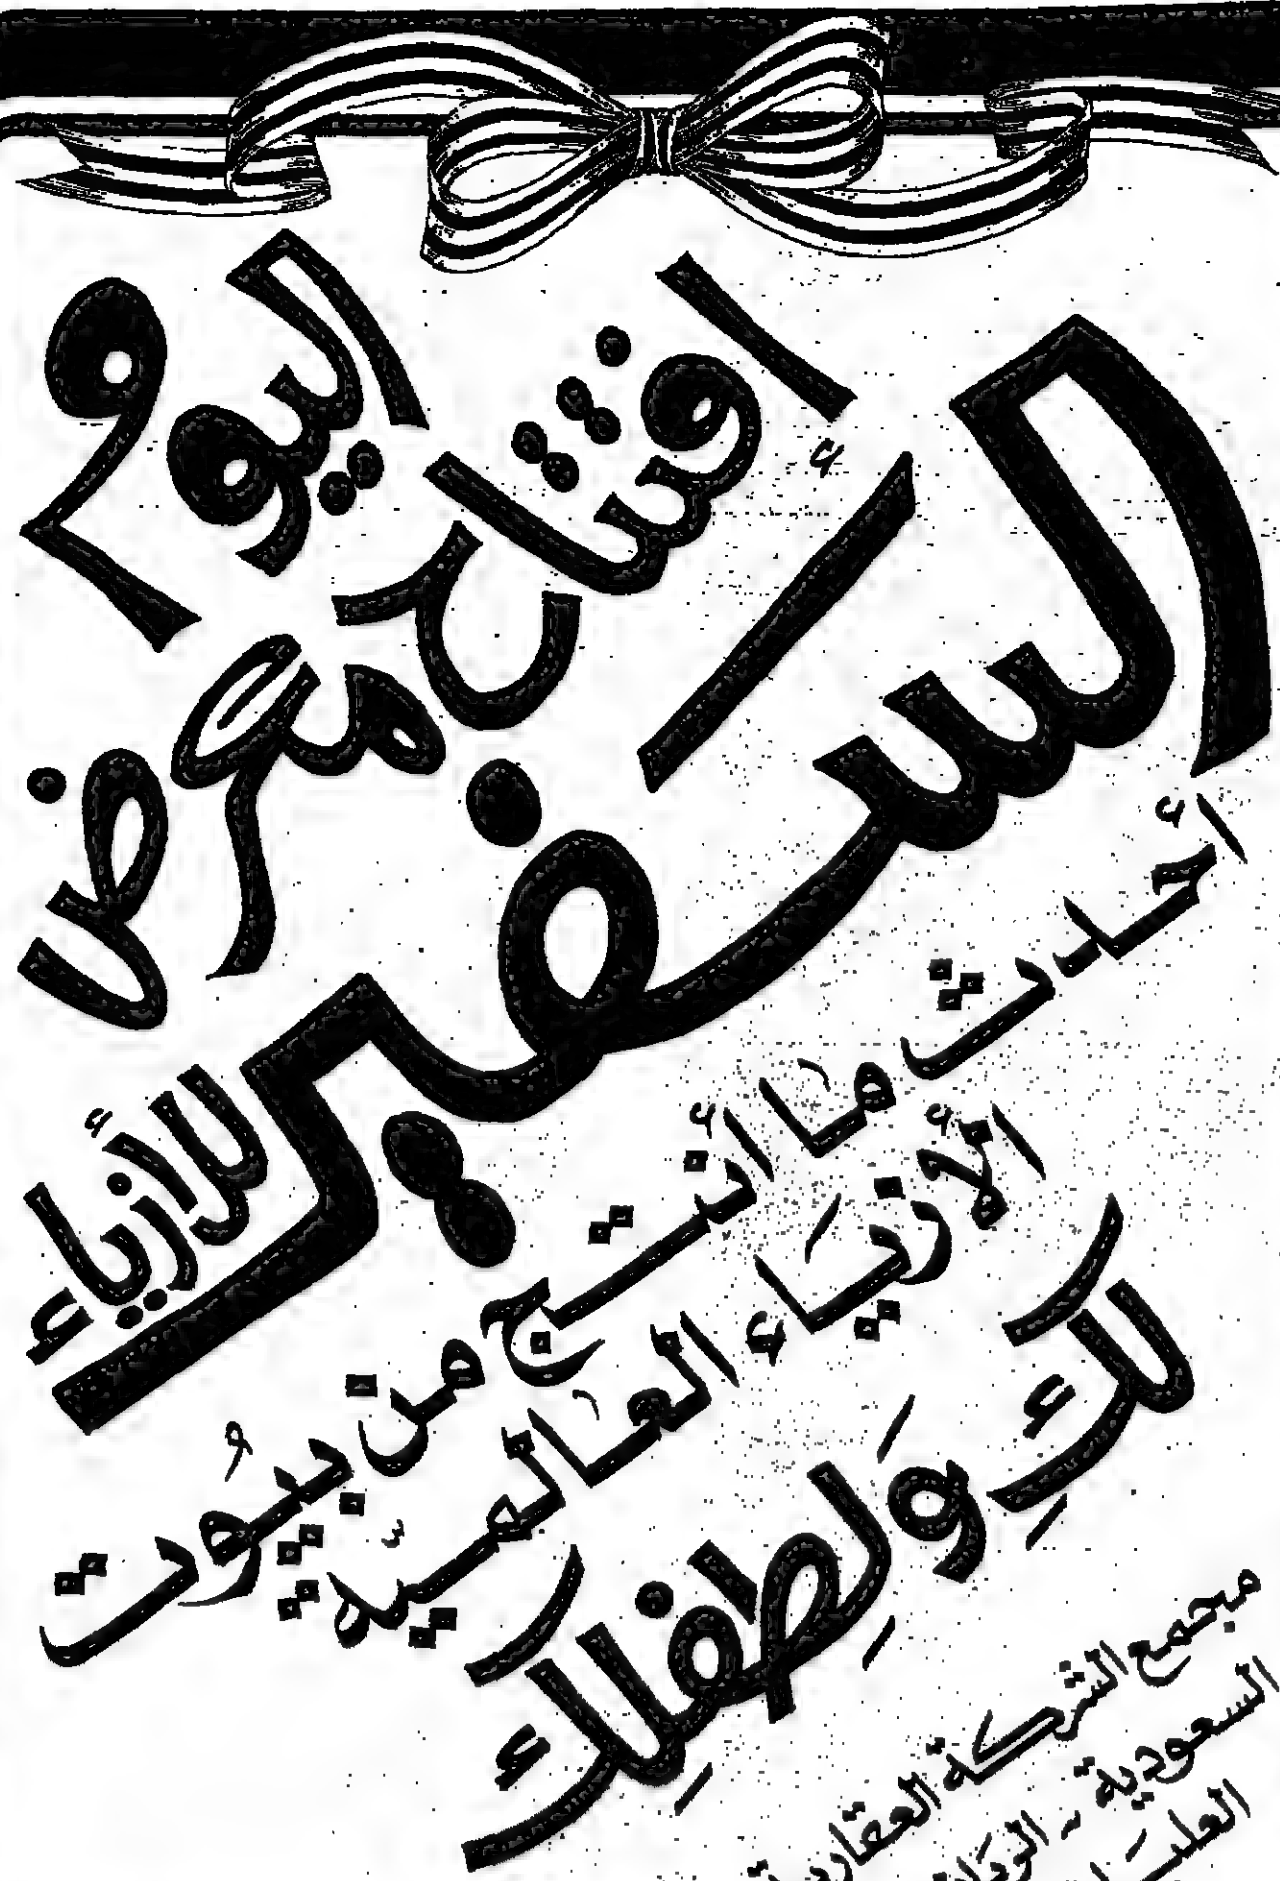 اليوم
افتتاح
معرض
السفير
للأزياء
أحدث ما أنتجت من بيوت
الأزياء العالمية
لكِ وَلِطفلِك
مجمع الشركة العقارية
السعودية -